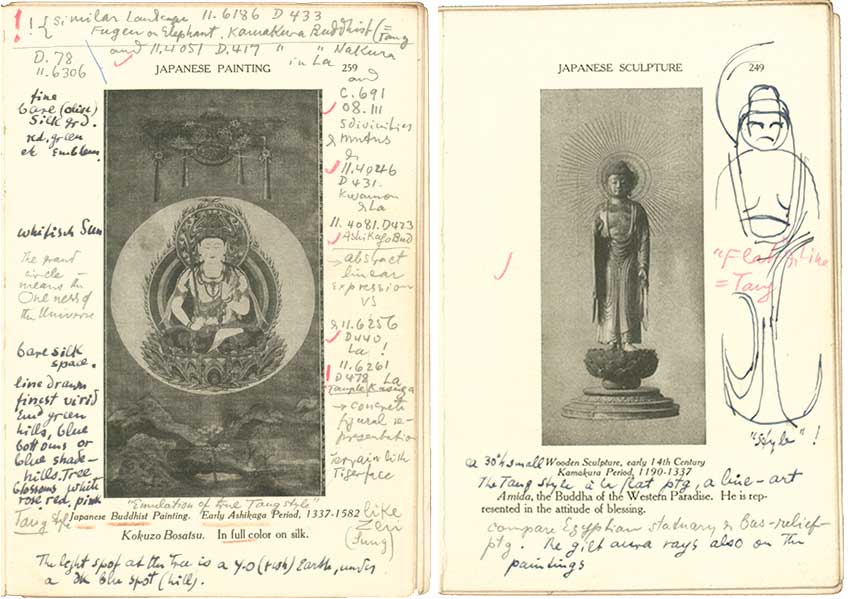 !! { Similar Landscape 11.6186 D 433
Fugen on Elephant, Kamakura Buddhist (= Tang
and 11.4051 D.417 " " Nakura
in La
D. 78
11.6306
JAPANESE PAINTING 259
fine
bare (dark)
Silk grd.
red, green
etc Emblem.
whitisch Sun
The grand
circle
means the
Oneness of
the Universe
bare silk
space.
line drawn
finest virid
Emd green
hills, blue
bottoms or
blue shade-
hills. Tree
blossoms white
rose red, pink
Tang style
and
C. 691
08.111
5 divinities
&
11.4046
D 431.
& La
11.4081. D423
Ashikaga Bud
→ abstract
linear
Expression
VS
& 11.6256
D440
La !
11.6261
D478 La
Temple Kasuga
→ concrete
figural re-
presentation
Terrain with
Tigerface
like
Zen
(Sung)
"Emulation of true Tang style"
Japanese Buddhist Painting. Early Ashikaga Period, 1337-1582
Kokuzo Bosatsu. In full color on silk.
The light spot at the Tree is a Y.O (rush) Earth, under
a dk blue spot (hill).
JAPANESE SCULPTURE 249
"Flat", like
= Tang
"Style" !
a 30"h small Wooden Sculpture, early 14th Century
Kamakura Period, 1190-1337
The Tang style à la flat ptg, a line-art
Amida, the Buddha of the Western Paradise. He is rep-
resented in the attitude of blessing.
compare Egyptian statuary & Bas-relief-
ptg. The gilt aura rays also on the
paintings